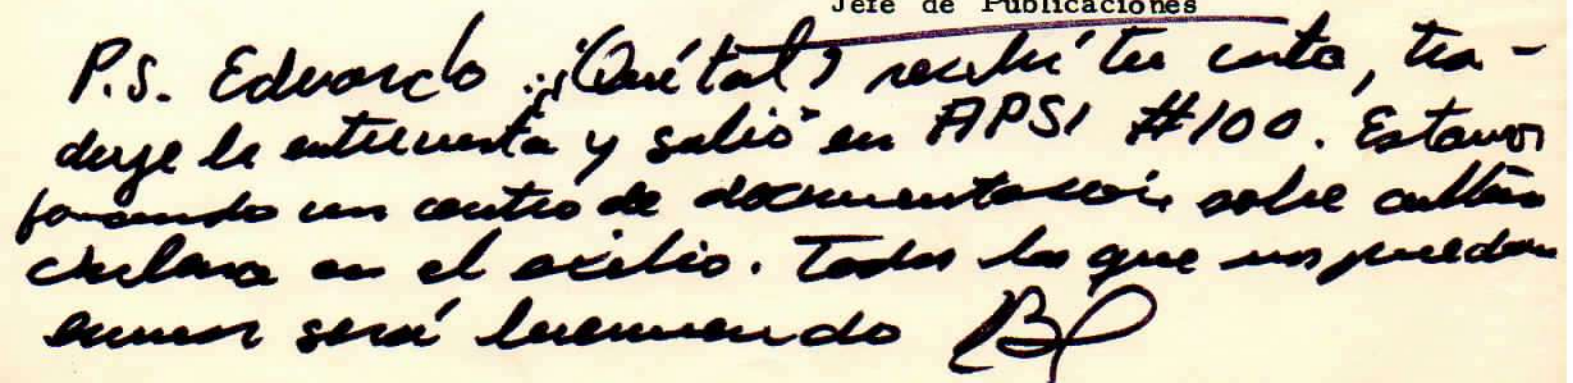 Jefe de Publicaciones
P.S. Eduardo ¡¿Qué tal? recibí tu carta, tra-
duje la entrevista y salió en APSI #100. Estamos
formando un centro de documentación sobre cultura
chilena en el exilio. Todo lo que nos puedan
enviar será bienvenido